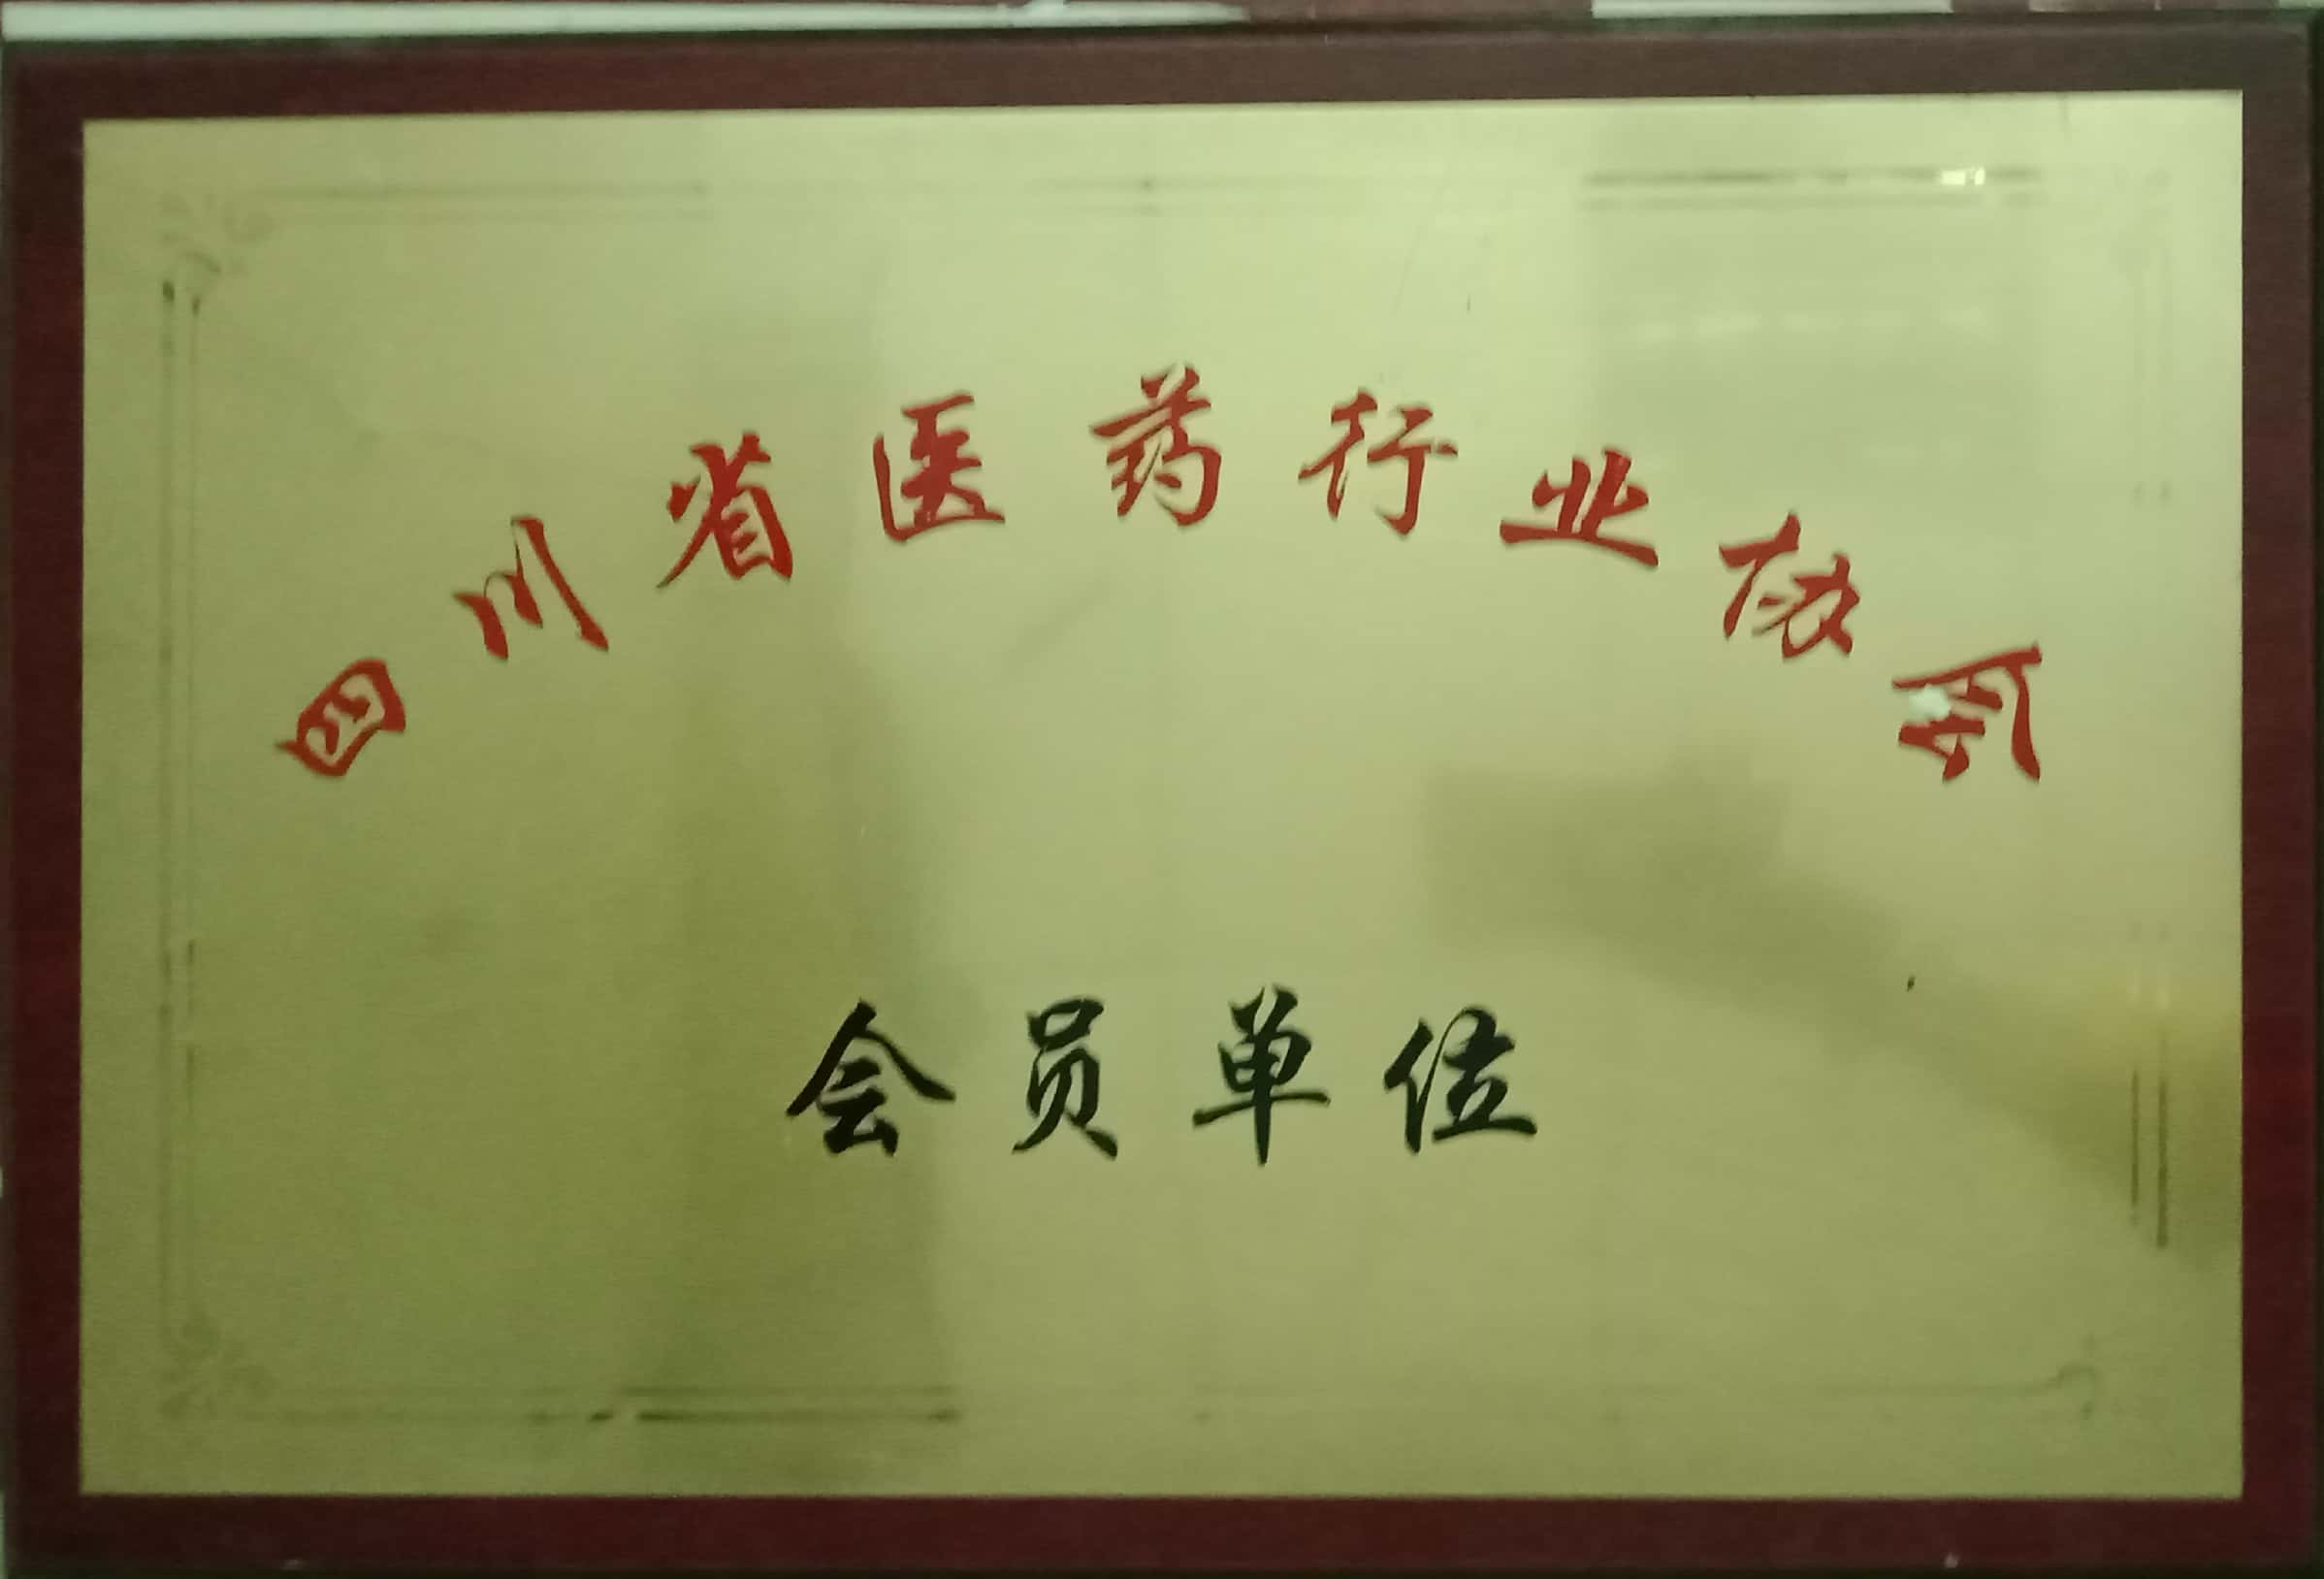 四川省医药行业协会
会员单位